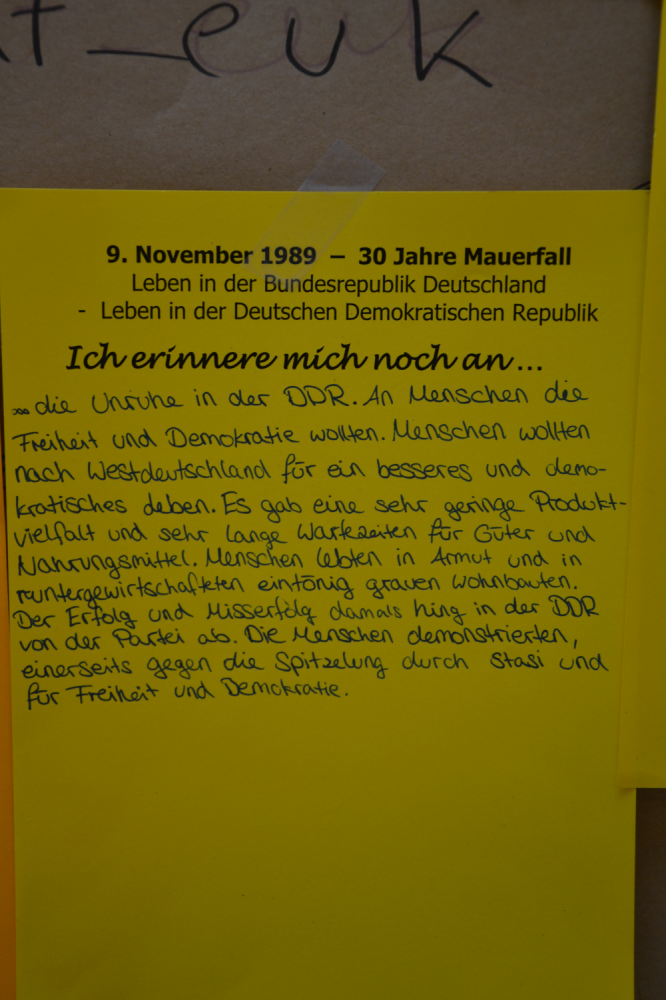 t_euk
9. November 1989 – 30 Jahre Mauerfall
Leben in der Bundesrepublik Deutschland
- Leben in der Deutschen Demokratischen Republik
Ich erinnere mich noch an ...
... die Unruhe in der DDR. An Menschen die
Freiheit und Demokratie wollten. Menschen wollten
nach Westdeutschland für ein besseres und demo-
kratisches Leben. Es gab eine sehr geringe Produkt-
vielfalt und sehr lange Wartezeiten für Güter und
Nahrungsmittel. Menschen lebten in Armut und in
runtergewirtschafteten eintönig grauen Wohnbauten.
Der Erfolg und Misserfolg damals hing in der DDR
von der Partei ab. Die Menschen demonstrierten,
einerseits gegen die Spitzelung durch Stasi und
für Freiheit und Demokratie.